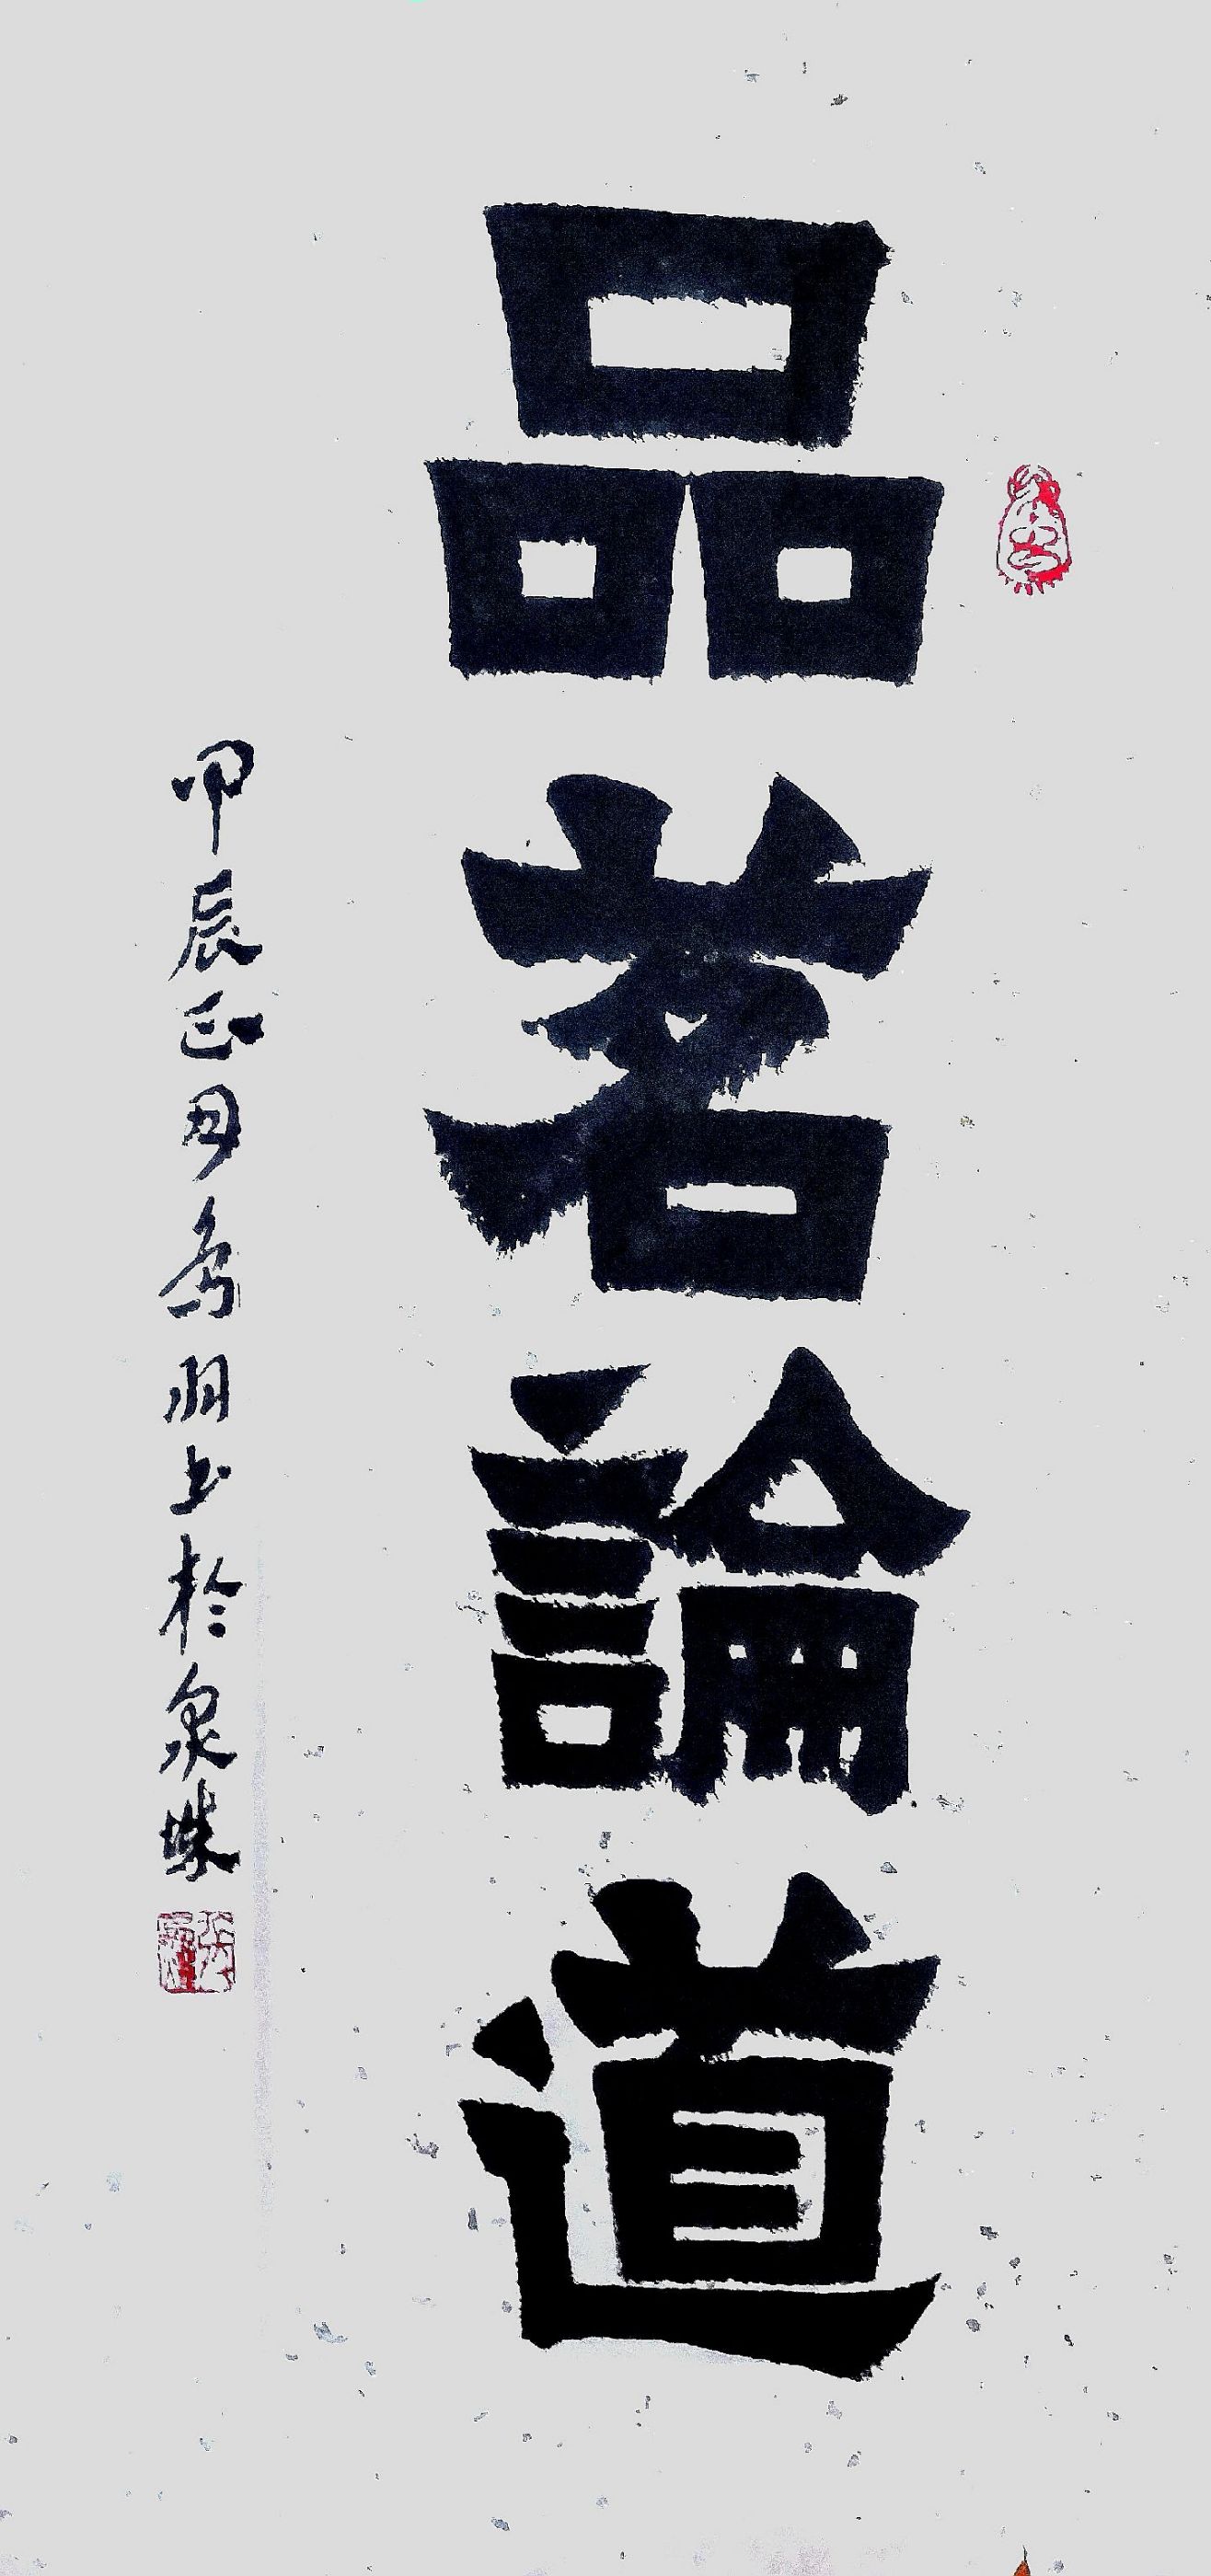 品茗論道
甲辰正月 羽书於泉城